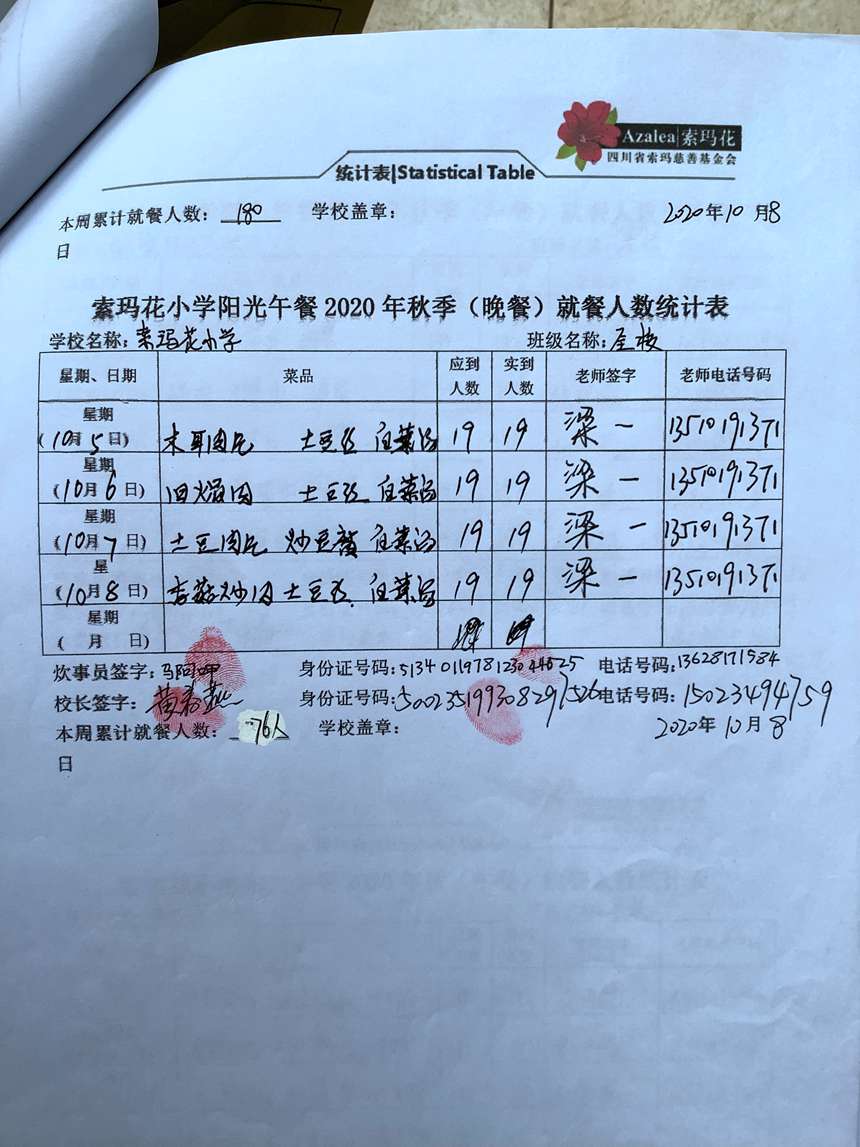 Azalea 索玛花
四川省索玛慈善基金会
统计表|Statistical Table
本周累计就餐人数： 180 学校盖章： 2020年10月8
日
索玛花小学阳光午餐 2020 年秋季（晚餐）就餐人数统计表
学校名称：索玛花小学 班级名称：全校
星期、日期 菜品 应到人数 实到人数 老师签字 老师电话号码
星期（10月5日） 木耳肉片 土豆丝 白菜汤 19 19 梁一 13510191371
星期（10月6日） 回锅肉 土豆丝 白菜汤 19 19 梁一 13510191371
星期（10月7日） 土豆肉片 炒豆腐 白菜汤 19 19 梁一 13510191371
星（10月8日） 土豆丝 白菜汤 19 19 梁一 13510191371
星期（ 月 日）
炊事员签字： 身份证号码： 电话号码：13628171584
校长签字： 身份证号码：500235199308297526 电话号码：15023494759
本周累计就餐人数： 76人 学校盖章： 2020年10月8
日